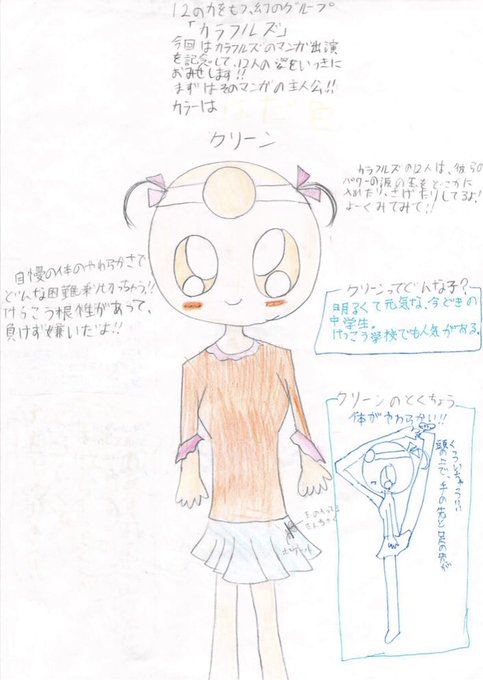 12の力をもつ、幻のグループ
「カラフルズ」
今回はカラフルズのマンガ出演
を記念して、12人の姿をいっきに
おみせします!!
まずはそのマンガの主人公!!
カラーは はだ色
クリーン
カラフルズの12人は、彼らの
パワーの源の玉をどこかに
入れたり、さげたりしてるよ!
よーくみてみて!!
自慢の体のやわらかさで
どんな困難ものりこえちゃう!!
けっこう根性があって、
負けず嫌いだよ!!
クリーンってどんな子?
明るくて元気な、今どきの
中学生。
けっこう学校でも人気がある。
クリーンのとくちょう
体がやわらかい!!
頭の上で、手の先と足の先が
ポケット